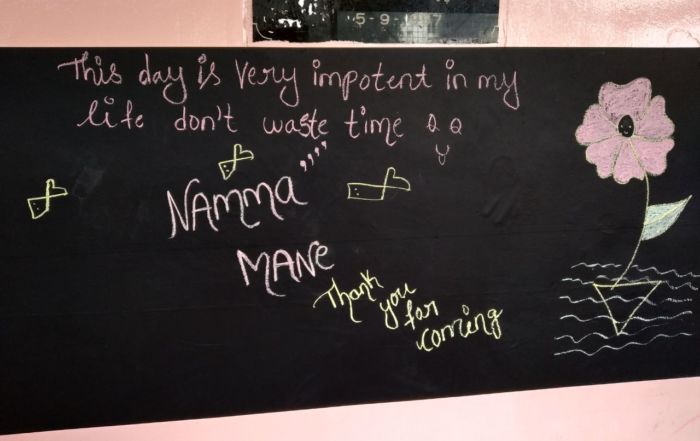 5-9-
This day is very impotent in my
life don't waste time
NAMMA''''
MANe
Thank
you
for
coming